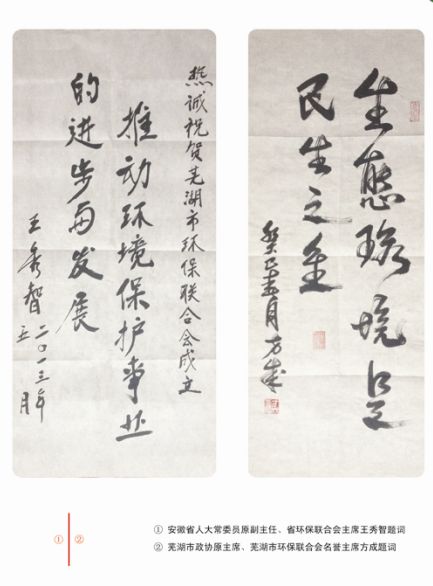 热诚祝贺芜湖市环保联合会成立
推动环境保护事业
的进步与发展
王秀智
二〇一三年
五月
生態环境是
民生之
癸巳 月方成
① ②
① 安徽省人大常委员原副主任、省环保联合会主席王秀智题词
② 芜湖市政协原主席、芜湖市环保联合会名誉主席方成题词